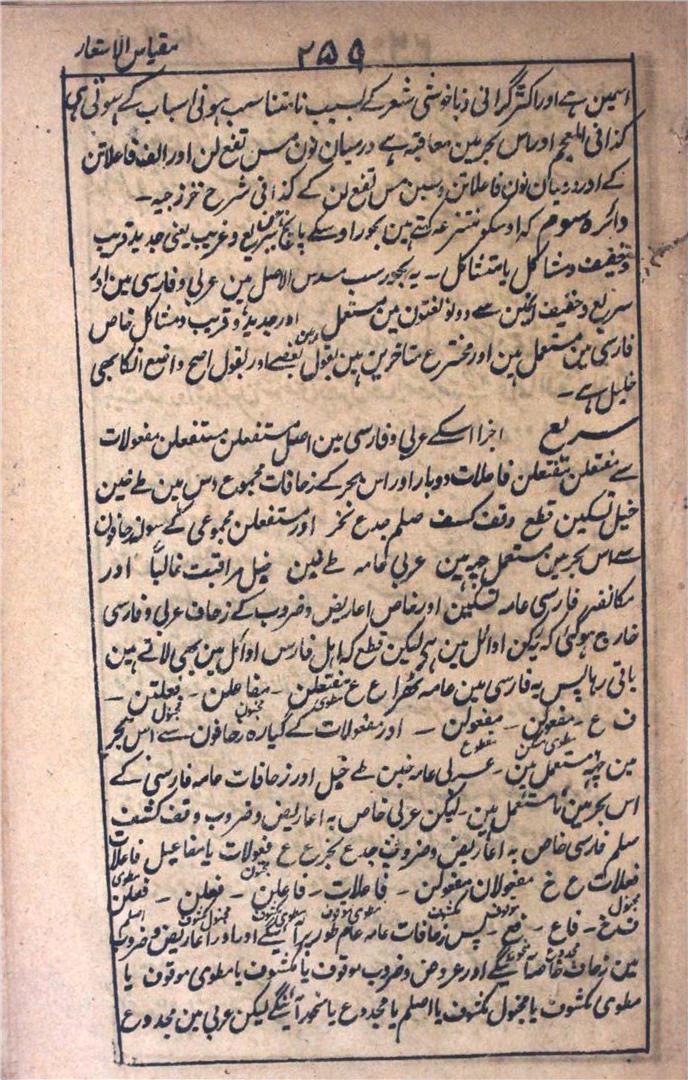 ۲۵۹ مقیاس الاشعار
اسمین ہے اور اکثر گرانی و ناخوشی شعر کے بسبب نامتناسب ہونی اسباب کے ہوتی ہی
کذا فی المعجم اور اس بحر مین معاقبہ ہے درمیان نون مس تفع لن اور الف فاعلاتن
کے اور درمیان نون فاعلاتن وسین مس تفع لن کے کذا فی شرح خزرجیہ ۔
دائرہ سوم کہ اوسکو منتزعہ کہتے ہین بحور اوسکے پانچ ہین سریع و غریب یعنی جدید قریب
و خفیف و مشاکل یا متشاکل ۔ یہ بحور سب مسدس الاصل ہین عربی و فارسی مین اور
سریع و خفیف انمین سے دونو لغتون مین مستعمل اور جدید و قریب و مشاکل خاص
فارسی مین مستعمل ہین اور مخترع متاخرین ہین بقول بعضے اور بقول اصح واضع انکا بھی
خلیل ہے ۔
سریع اجزا اسکے عربی و فارسی مین اصل مستفعلن مستفعلن مفعولات
سے مفتعلن مفتعلن فاعلات دوبار اور اس بحر کے زحافات مجموع دس ہین طے خبن
خبل تسکین قطع وقف کسف صلم جدع نحر اور مستفعلن مجموعی کے سولہ زحافون
سے اس بحر مین مستعمل چھ ہین عربی عامہ طے خبن خبل مراقبت غالباً اور
مکانفہ فارسی عامہ تسکین اور خاص اعاریض و ضروب کے زحاف عربی و فارسی
خارج ہوگئی کہ رکن اوائل مین ہی لیکن قطع کہ اہل فارس اوائل مین بھی لاتے ہین
باقی رہا پس یہ فارسی مین عامہ ٹھہرا ع ع مفتعلن ۔ مفاعلن ۔ فعلتن ۔
ف ع ۔ مفعولن ۔ مفعولن ۔ اور مفعولات کے گیارہ زحافون سے اس بحر
مین چھ مستعمل ہین ۔ عربی عامہ خبن طے خبل اور زحافات عامہ فارسی کے
اس بحر مین نامستعمل ہین ۔ لیکن عربی خاص بہ اعاریض و ضروب وقف کشف
صلم فارسی خاص بہ اعاریض و ضروب جدع نحر ع ع فعولات یا مفاعیل فاعلات
فعلات ع خ مفعولان مفعولن ۔ فاعلات ۔ فاعلن ۔ فعلن ۔ فعلن
ف خ ۔ فاع ۔ فع ۔ پس زحافات عامہ عام طور پر آئینگے اور اعاریض و ضروب
مین زحاف خاصہ آئینگے اور عروض و ضروب موقوف یا مکشوف یا مطوی موقوف یا
مطوی مکشوف یا مخبول مکشوف یا اصلم یا مجدوع یا منحور آئینگے لیکن عربی مین مجدوع